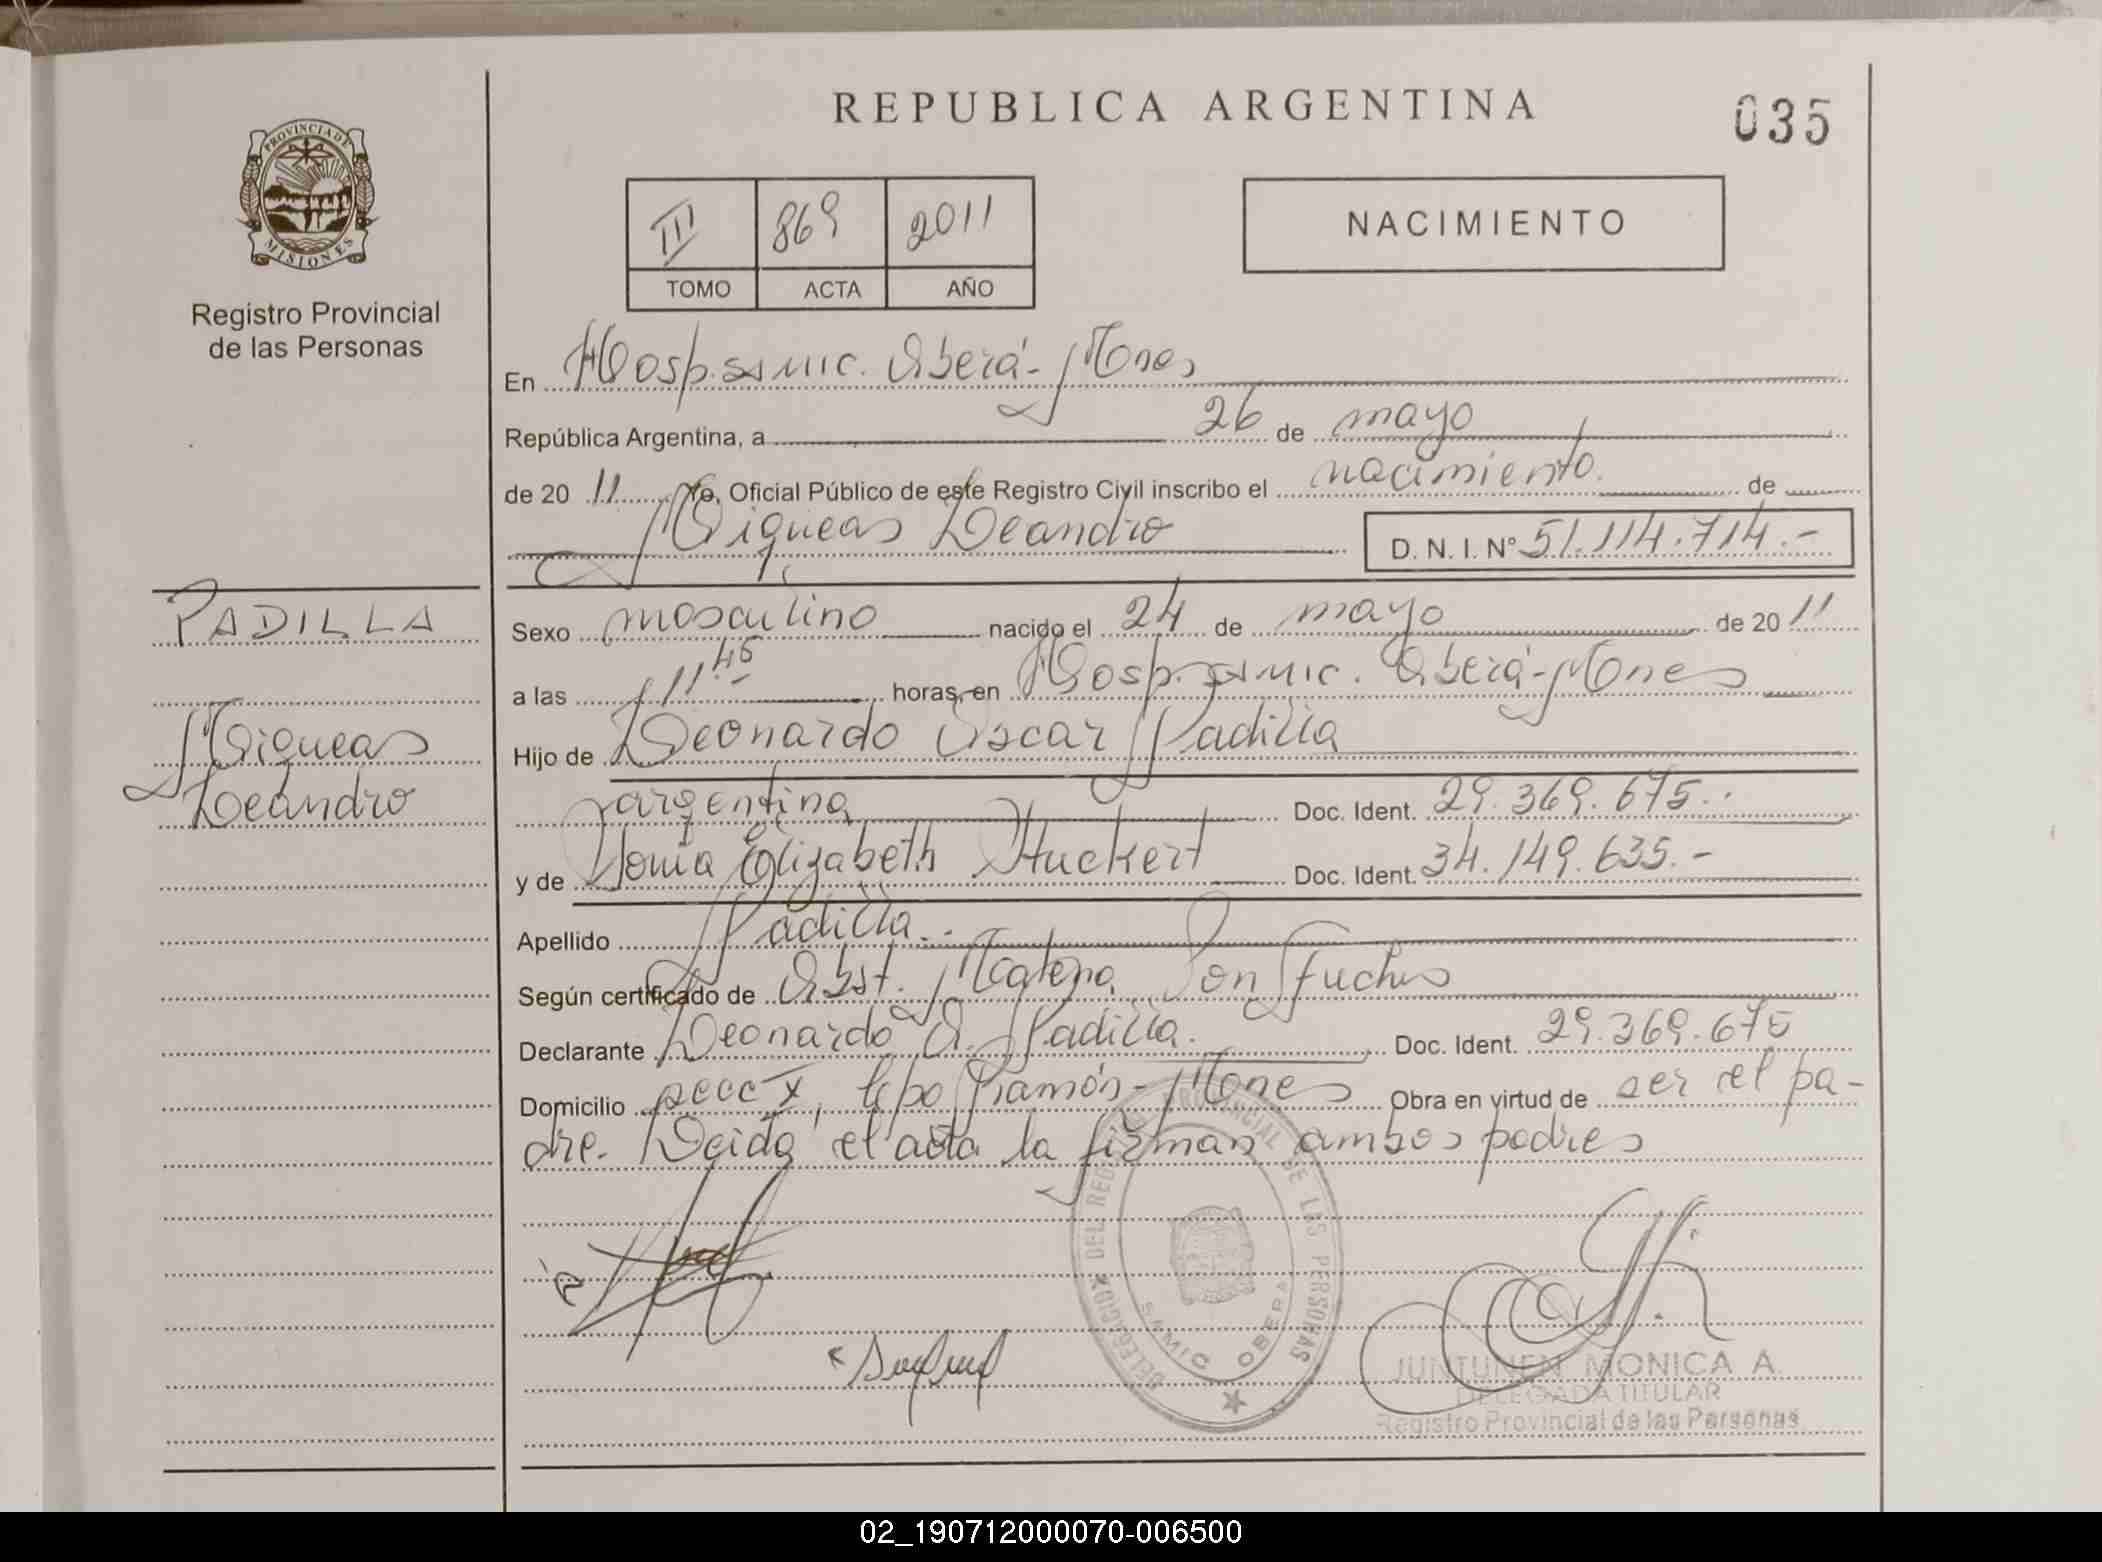 REPUBLICA ARGENTINA
035
PROVINCIA DE
MISIONES
Registro Provincial
de las Personas
III 869 2011
TOMO ACTA AÑO
NACIMIENTO
En Hosp. SAMIC. Oberá - Mnes
República Argentina, a 26 de mayo
de 20 11 Yo, Oficial Público de este Registro Civil inscribo el nacimiento de
Miqueas Leandro
D. N. I. Nº 51.114.714.-
PADILLA
Miqueas
Leandro
Sexo masculino nacido el 24 de mayo de 20 11
a las 11 45 horas, en Hosp. SAMIC. Oberá - Mnes
Hijo de Leonardo Oscar Padilla
argentina Doc. Ident. 29.369.675.-
y de Sonia Elizabeth Huckert Doc. Ident. 34.149.635.-
Apellido Padilla.-
Según certificado de Obst. Fuchs
Declarante Leonardo O. Padilla. Doc. Ident. 29.369.675
Domicilio Ramón - Mnes Obra en virtud de ser el pa-
dre. Leida el acta la firman ambos padres
DELEGACION DEL REGISTRO PROVINCIAL DE LAS PERSONAS
SAMIC OBERA
JUNTUNEN MONICA A.
DELEGADA TITULAR
Registro Provincial de las Personas
02_190712000070-006500